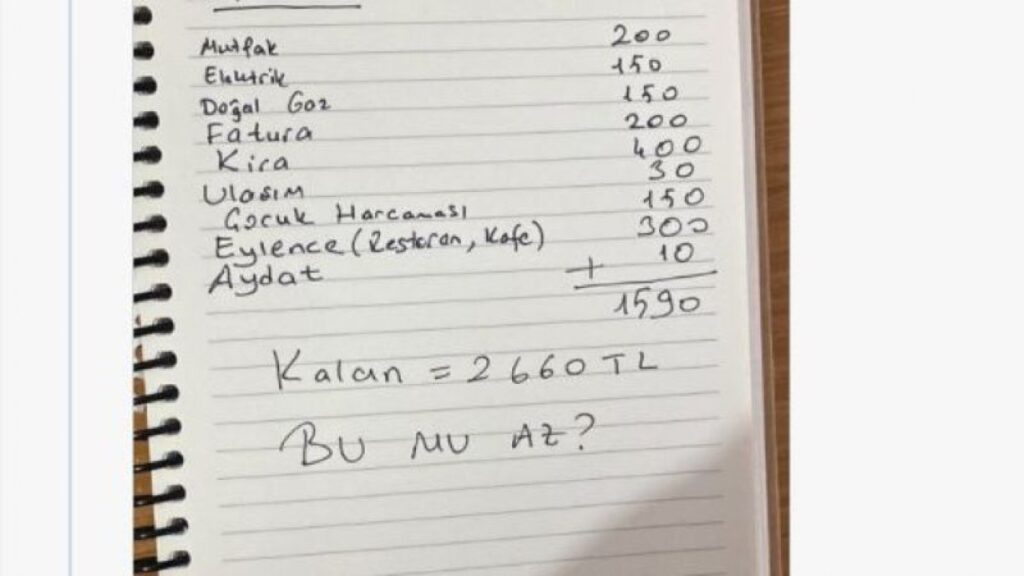 Mutfak 200
Elektrik 150
Doğal Gaz 150
Fatura 200
Kira 400
Ulaşım 30
Çocuk Harcaması 150
Eylence (Restoran, Kafe) 300
Aydat + 10
1590
Kalan = 2660 TL
BU MU AZ?